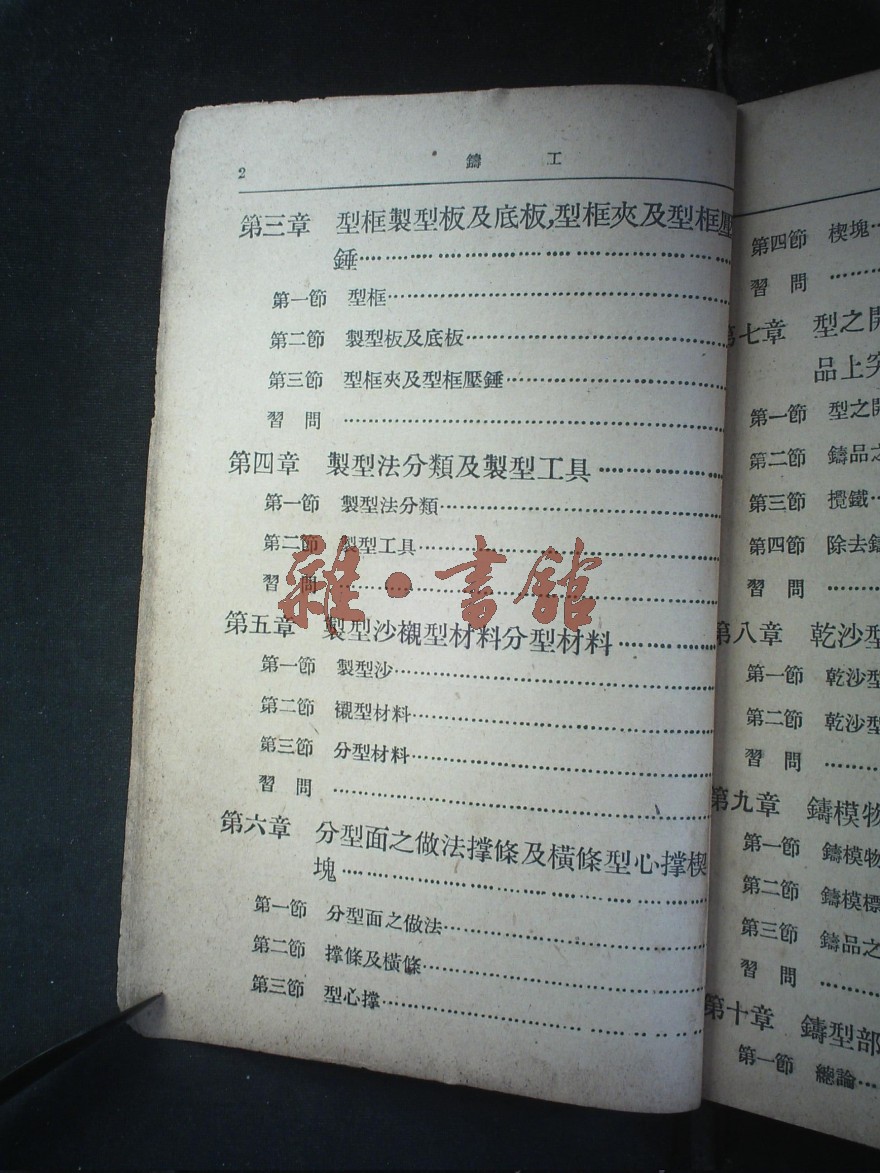 2
鑄 工
第三章 型框製型板及底板,型框夾及型框壓
錘……………………………………
第一節 型框……………………………………
第二節 製型板及底板……………………………
第三節 型框夾及型框壓錘………………………
習 問 ……………………………………
第四章 製型法分類及製型工具……………
第一節 製型法分類……………………………
第二節 製型工具……………………………
習 問 ……………………………………
第五章 製型沙襯型材料分型材料…………
第一節 製型沙……………………………
第二節 襯型材料……………………………
第三節 分型材料……………………………
習 問 ……………………………………
第六章 分型面之做法撑條及橫條型心撑楔
塊……………………………………
第一節 分型面之做法……………………………
第二節 撑條及橫條……………………………
第三節 型心撑……………………………
雜·書館
第四節 楔塊…
習 問 ………
第七章 型之開
品上突
第一節 型之開
第二節 鑄品之
第三節 攪鐵…
第四節 除去鑄
習 問 ………
第八章 乾沙型
第一節 乾沙型
第二節 乾沙型
習 問 ………
第九章 鑄模物
第一節 鑄模物
第二節 鑄模標
第三節 鑄品之
習 問 ………
第十章 鑄型部
第一節 總論…